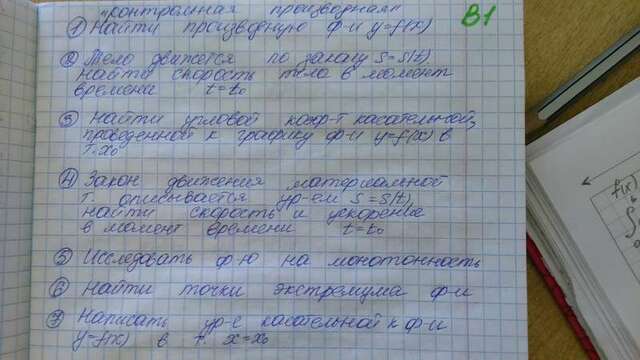 "контрольная производная"
В1
① Найти производную ф-и y=f(x)
② Тело движется по закону S=S(t)
найти скорость тела в момент
времени t=t₀
③ Найти угловой коэф-т касательной,
проведенной к графику ф-и y=f(x) в
т. x₀
④ Закон движения материальной
т. описывается ур-ем S=S(t),
найти скорость и ускорение
в момент времени t=t₀
⑤ Исследовать ф-ю на монотонность
⑥ Найти точки экстремума ф-и
⑦ Написать ур-е касательной к ф-и
y=f(x) в т. x=x₀
f(x)